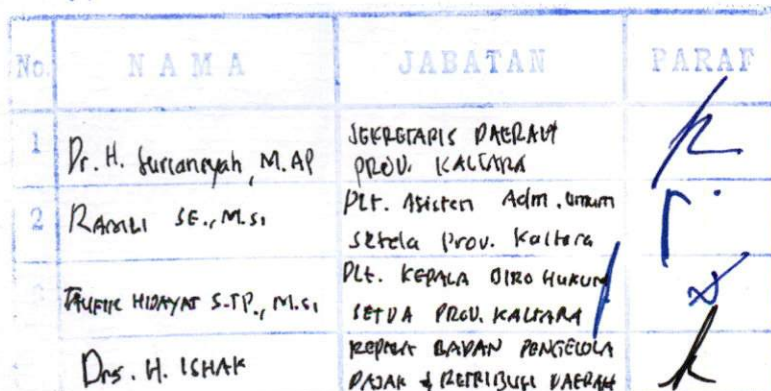 No. NAMA JABATAN PARAF
1 Dr. H. Suriansyah, M.AP SEKRETARIS DAERAH
PROV. KALTARA
2 RAMLI SE., M.Si Plt. Asisten Adm. Umum
Setda Prov. Kaltara
3 TAUFIK HIDAYAT S.TP., M.Si PLt. KEPALA BIRO HUKUM
SETDA PROV. KALTARA
Drs. H. ISHAK KEPALA BADAN PENGELOLA
PAJAK & RETRIBUSI DAERAH